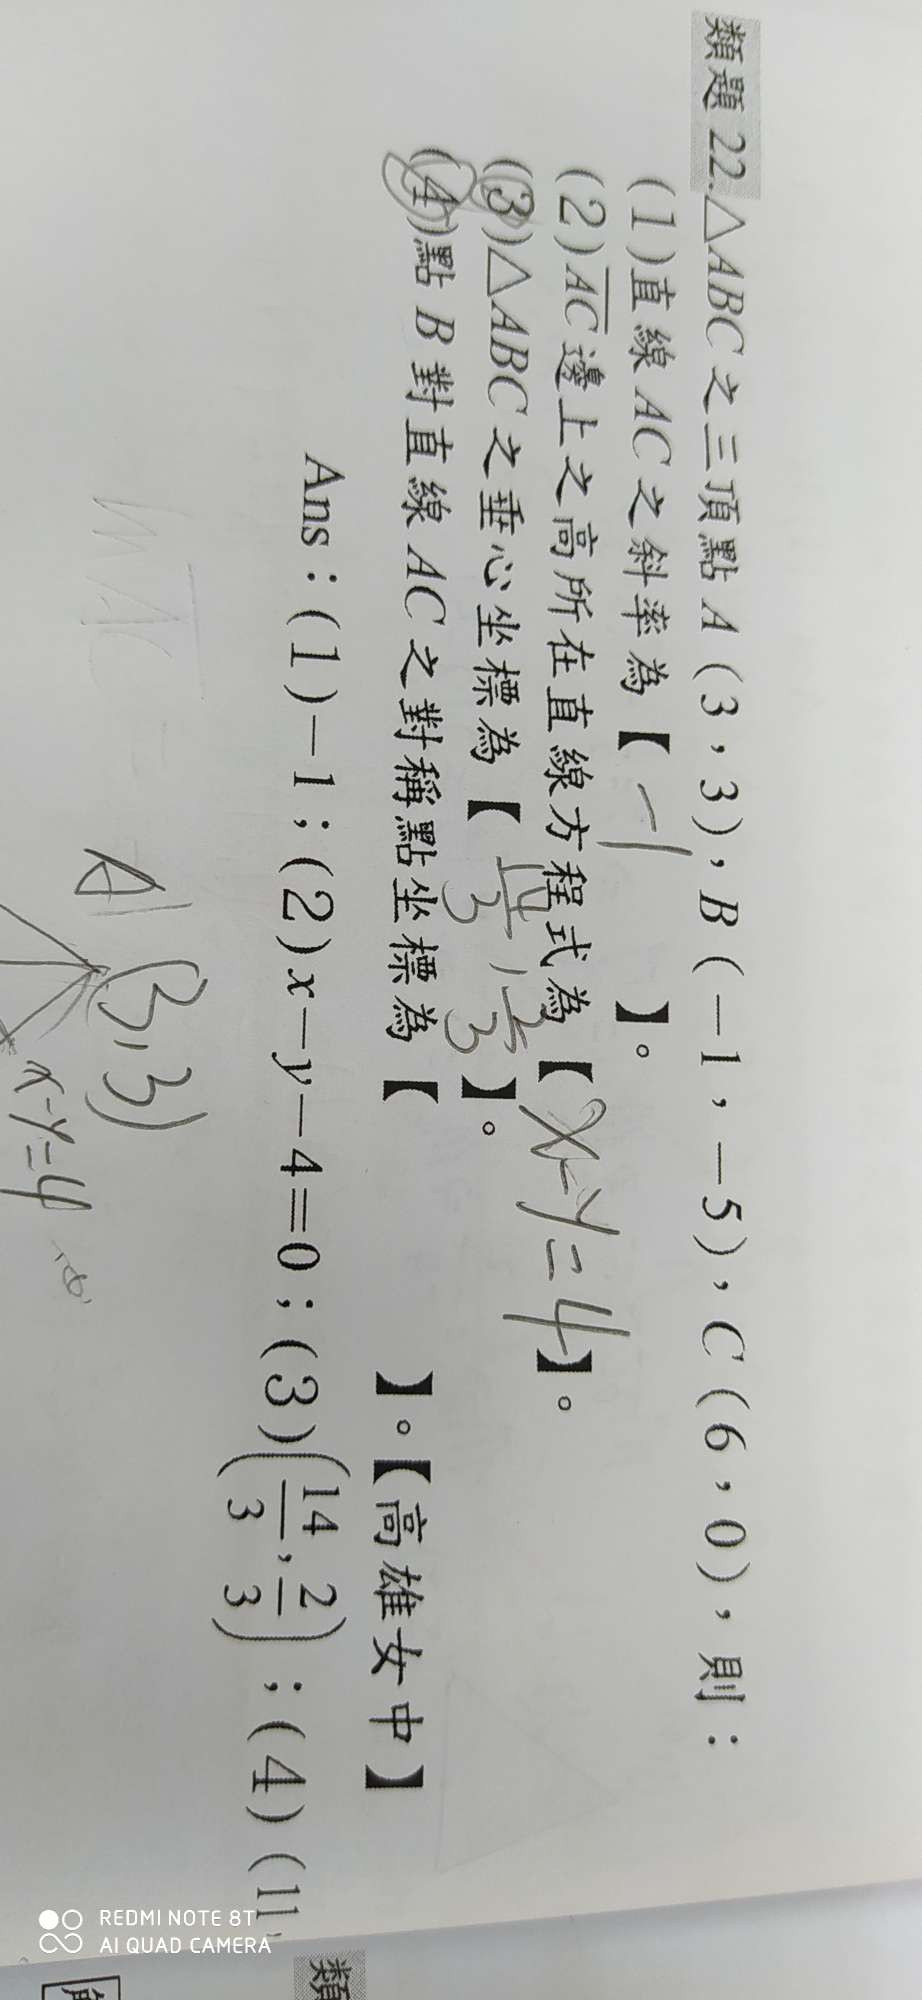 類題 22.△ABC之三頂點A(3,3),B(-1,-5),C(6,0),則:
(1)直線AC之斜率為【-1】。
(2)A̅C̅邊上之高所在直線方程式為【x-y=4】。
(3)△ABC之垂心坐標為【14/3, 2/3】。
(4)點B對直線AC之對稱點坐標為【 】。【高雄女中】
Ans:(1)-1;(2)x-y-4=0;(3)(14/3, 2/3);(4)(11,
A(3,3)
x-y=4
REDMI NOTE 8T
AI QUAD CAMERA
類